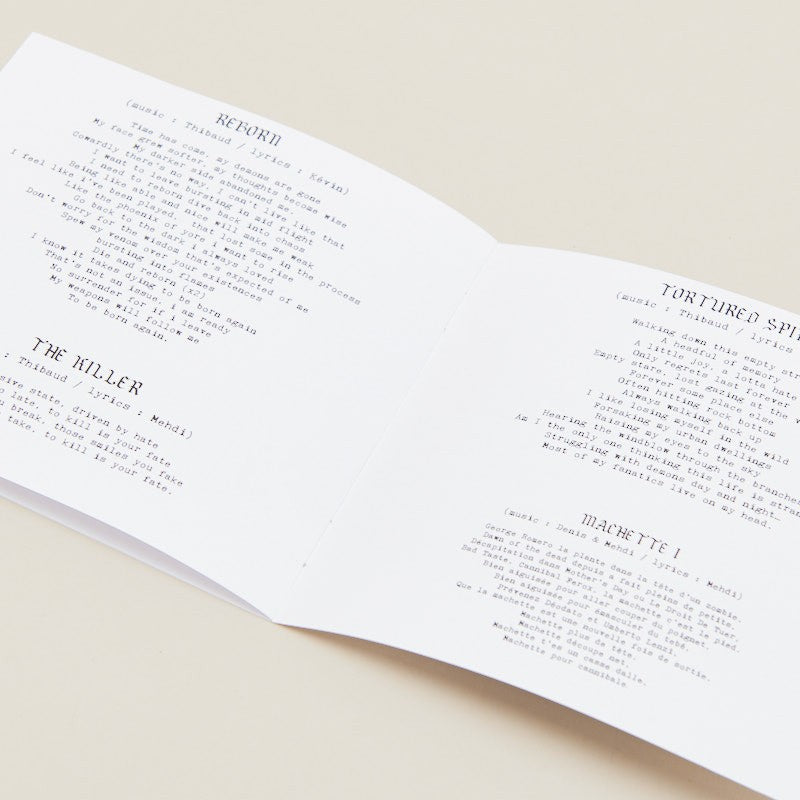 REBORN
(music : Thibaud / lyrics : Kévin)
Time has come, my demons are gone
My face grew softer, my thoughts become wise
My darker side abandoned me.
Cowardly there's no way, I can't live like that
I want to leave bursting in mid flight
I need to reborn dive back into chaos
Being like able and nice will make me weak
I feel like i've been played, that lost some in the process
Like the phoenix of yore i want to rise
Go back to the dark i always loved
Don't worry for the wisdom that's expected of me
Spew my venom over your existences
Die and reborn (x2)
bursting into flames
I know it takes dying to be born again
That's not an issue, i am ready
No surrender for if i leave
My weapons will follow me
To be born again.
THE KILLER
: Thibaud / lyrics : Mehdi)
sive state, driven by hate
o late, to kill is your fate
u break, those smiles you fake
take, to kill is your fate.
TORTURED SPI
(music : Thibaud / lyrics
Walking down this empty str
A headful of memory
A little joy, a lotta hate
Only regrets last forever
Empty stare, lost gazing at the w
Forever some place else
Often hitting rock bottom
Always walking back up
I like losing myself in the wild
Forsaking my urban dwellings
Raising my eyes to the sky
Hearing the windblow through the branches
Am I the only one thinking this life is stran
Struggling with demons day and night…
Most of my fanatics live on my head.
MACHETTE I
(music : Denis & Mehdi / lyrics : Mehdi)
George Romero la plante dans la tête d'un zombie.
Dawn of the dead depuis a fait pleins de petits.
Décapitation dans Mother's Day ou Le Droit De Tuer,
Bad Taste, Cannibal Ferox, la machette c'est le pied.
Bien aiguisée pour aller couper du poignet.
Bien aiguisée pour émasculer du tebé.
Prévenez Déodato et Umberto Lenzi.
Que la machette est une nouvelle fois de sortie.
Machette plus de tête.
Machette découpe net.
Machette t'es un casse dalle.
Machette pour cannibale.